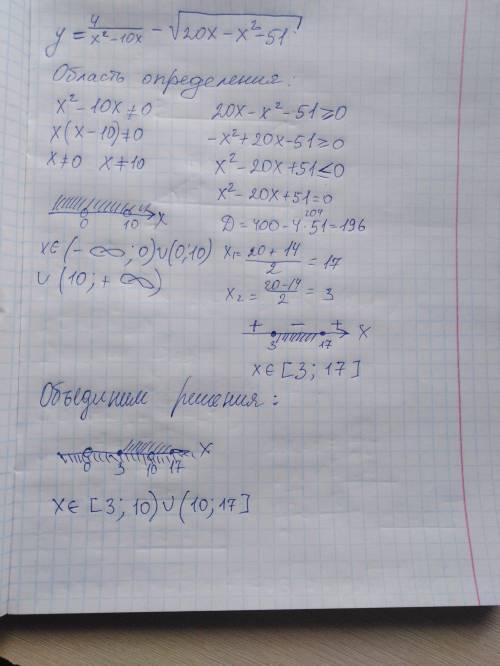 y = 4/(x²-10x) - √(20x-x²-51)
Область определения:
x²-10x≠0
x(x-10)≠0
x≠0 x≠10
0 10 x
x∈(-∞;0)∪(0;10)
∪(10;+∞)
20x-x²-51≥0
-x²+20x-51≥0
x²-20x+51≤0
x²-20x+51=0
204
D=400-4·51=196
x₁=(20+14)/2=17
x₂=(20-14)/2=3
+ - + x
3 17
x∈[3;17]
Объединим решения:
0 3 10 17 x
x∈[3;10)∪(10;17]